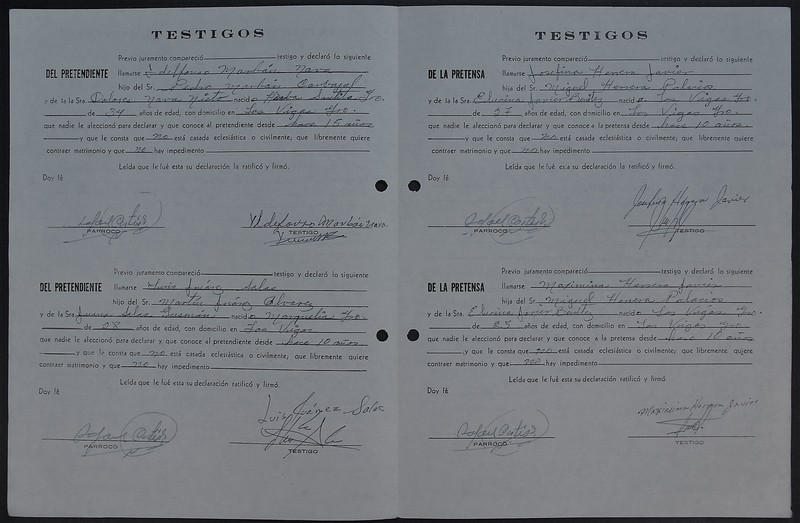 TESTIGOS
Previo juramento compareció testigo y declaró lo siguiente
DEL PRETENDIENTE llamarse Ydelfonso Marbán Nava
hijo del Sr. Pedro Marbán Carbajal
y de la Sra. Dolores Nava Nieto nacido
de 34 años de edad, con domicilio en Las Vigas Gro.
que nadie le aleccionó para declarar y que conoce al pretendiente desde hace 15 años
y que le consta que no está casada eclesiástica o civilmente; que libremente quiere
contraer matrimonio y que no hay impedimento
Leída que le fué esta su declaración la ratificó y firmó.
Doy fé
Rafael Ortiz
PARROCO
Ydelfonso Marbán Nava
TESTIGO
Previo juramento compareció testigo y declaró lo siguiente
DEL PRETENDIENTE llamarse Luis Juárez Salas
hijo del Sr. Martín Juárez Alvarez
y de la Sra. Juana Salas Guzmán nacido Marquelia Gro.
de 28 años de edad, con domicilio en Las Vigas
que nadie le aleccionó para declarar y que conoce al pretendiente desde hace 10 años
y que le consta que no está casada eclesiástica o civilmente; que libremente quiere
contraer matrimonio y que no hay impedimento
Leída que le fué esta su declaración ratificó y firmó.
Doy fé
Rafael Ortiz
PARROCO
Luis Juárez Salas
TESTIGO
TESTIGOS
Previo juramento compareció testigo y declaró lo siguiente
DE LA PRETENSA llamarse Josefina Herrera Javier
hija del Sr. Miguel Herrera Palacios
y de la Sra. Elucina Javier Benítez nacida Las Vigas Gro.
de 27 años de edad, con domicilio en Las Vigas Gro.
que nadie le aleccionó para declarar y que conoce a la pretensa desde hace 10 años.
y que le consta que no está casada eclesiástica o civilmente; que libremente quiere
contraer matrimonio y que no hay impedimento
Leída que le fué esta su declaración la ratificó y firmó.
Doy fé
Rafael Ortiz
PARROCO
Josefina Herrera Javier
TESTIGO
Previo juramento compareció testigo y declaró lo siguiente
DE LA PRETENSA llamarse Maximina Herrera Javier
hija del Sr. Miguel Herrera Palacios
y de la Sra. Elucina Javier Benítez nacida Las Vigas Gro.
de 25 años de edad, con domicilio en Las Vigas Gro.
que nadie le aleccionó para declarar y que conoce a la pretensa desde hace 10 años
y que le consta que no está casada eclesiástica o civilmente; que libremente quiere
contraer matrimonio y que no hay impedimento
Leída que le fué esta su declaración la ratificó y firmó.
Doy fé
Rafael Ortiz
PARROCO
Maximina Herrera Javier
TESTIGO